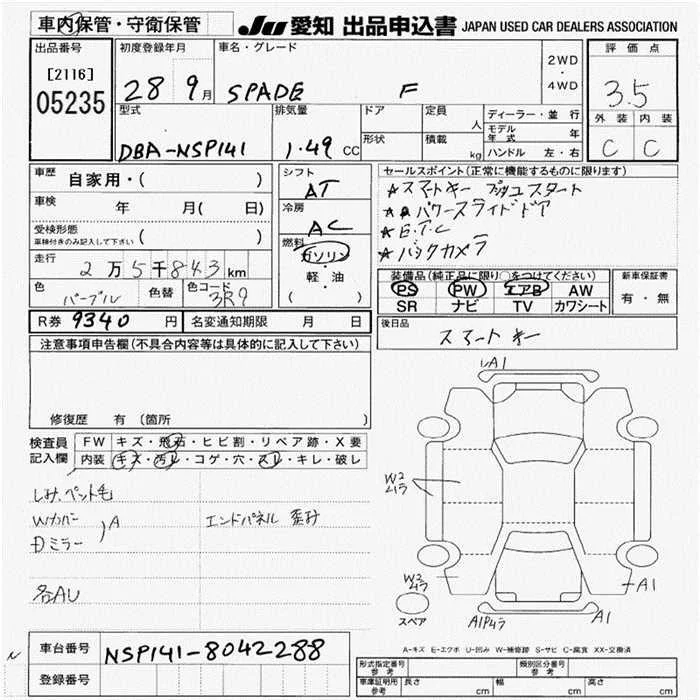 車内保管・守衛保管
JU 愛知 出品申込書 JAPAN USED CAR DEALERS ASSOCIATION
出品番号 初度登録年月 車名・グレード 評価点
[2116]
05235
28 9月 SPADE F
2WD・4WD
3.5
型式 排気量 ドア 定員 人 ディーラー・並行
形状 積載 kg モデル年式 年
ハンドル 左・右
外装 内装
DBA-NSP141 1.49 CC
C C
車歴 自家用・( )
シフト AT
セールスポイント(正常に機能するものに限ります)
★スマートキー プッシュスタート
★パワースライドドア
★E.T.C
★バックカメラ
車検 年 月( 日)
冷房 AC
受検形態 車検付きのみ記入して下さい ( )
燃料 ガソリン・軽・油 ( )
走行 2万5千843km
色 パープル 色替 色コード 3R9
装備品(純正品に限り○をつけてください) 新車保証書
PS PW エアB AW 有・無
SR ナビ TV カワシート
R券 9340 円 名変通知期限 月 日
後日品
スマートキー
注意事項申告欄(不具合内容等は具体的に記入して下さい)
修復歴 有(箇所 )
検査員記入欄 FW キズ・飛石・ヒビ割・リペア跡・X要
内装 キズ・汚レ・コゲ・穴・スレ・キレ・破レ
シみ、ペット毛
Wカバー
ミラー
A
エンドパネル 歪み
各AU
A1
W2ムラ
W2ムラ
A1
A1P4ラ
スペア
A-キズ E-エクボ U-凹み W-補修跡 S-サビ C-腐食 XX-交換済
車台番号 NSP141-8042288
登録番号
形式指定番号 参考 類別区分番号 参考
車庫証明用 参考 長さ cm 幅 cm 高さ cm